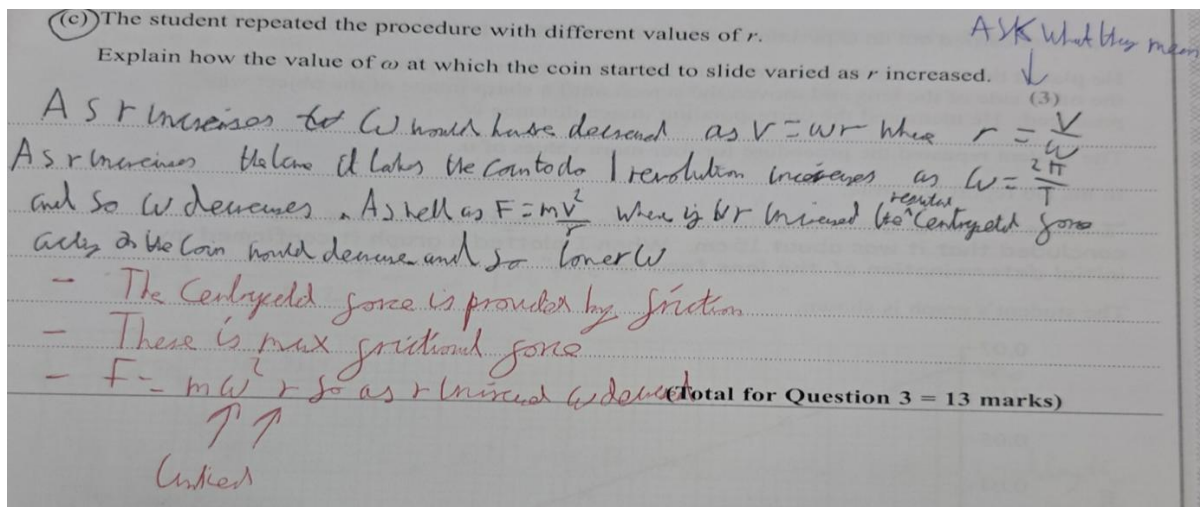 (c) The student repeated the procedure with different values of r.
ASK What they mean
Explain how the value of ω at which the coin started to slide varied as r increased.
(3)
As r increases ω would have decreased as V = ωr where r = V/ω
As r increases the time it takes the coin to do 1 revolution increases as ω = 2π/T
and so ω decreases. As well as F = mv²/r where if r increased the regular centripetal force
acting on the coin would decrease and so lower ω
- The Centripetal force is provided by friction
- There is max frictional force
- F = mω²r so as r increased ω decreased
(Total for Question 3 = 13 marks)
linked